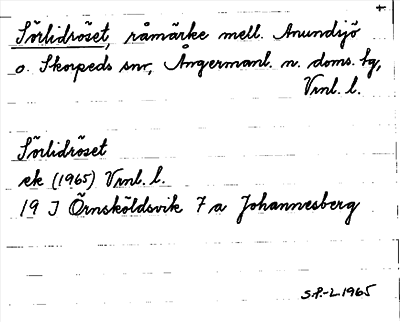 Sörlidröset, råmärke mell. Anundsjö
o. Skorpeds snr, Ångermanl. n. doms. hg,
Vnl. l.
Sörlidröset
ek (1965) Vnl. l.
19 I Örnsköldsvik 7 a Johannesberg
S.P.-L 1965